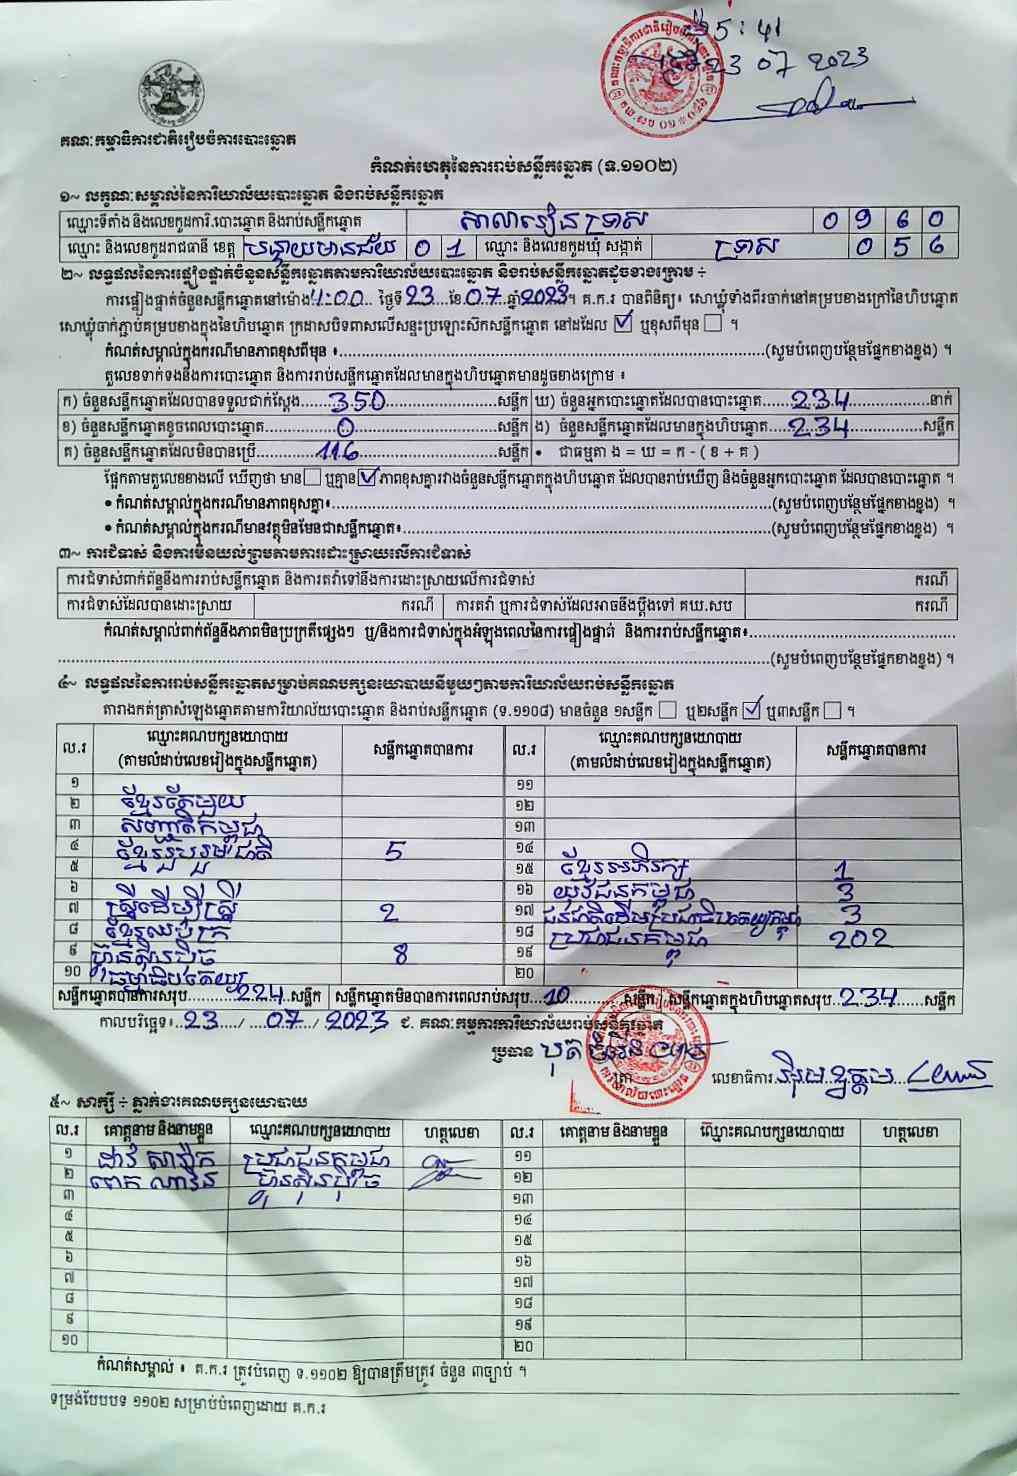 ម៉ោង 5:41
ថ្ងៃ 23 07 2023
គណៈកម្មាធិការជាតិរៀបចំការបោះឆ្នោត
កំណត់ហេតុនៃការរាប់សន្លឹកឆ្នោត (ទ.១១០២)
១~ លក្ខណៈសម្គាល់នៃការិយាល័យបោះឆ្នោត និងរាប់សន្លឹកឆ្នោត
ឈ្មោះទីតាំង និងលេខកូដការិ.បោះឆ្នោត និងរាប់សន្លឹកឆ្នោត សាលារៀន ទ្រាស 0 9 6 0
ឈ្មោះ និងលេខកូដរាជធានី ខេត្ត បន្ទាយមានជ័យ 0 1 ឈ្មោះ និងលេខកូដឃុំ សង្កាត់ ទ្រាស 0 5 6
២~ លទ្ធផលនៃការផ្ទៀងផ្ទាត់ចំនួនសន្លឹកឆ្នោតតាមការិយាល័យបោះឆ្នោត និងរាប់សន្លឹកឆ្នោតដូចខាងក្រោម ÷
ការផ្ទៀងផ្ទាត់ចំនួនសន្លឹកឆ្នោតនៅម៉ោង 4:00 ថ្ងៃទី 23 ខែ 07 ឆ្នាំ 2023 ។ គ.ក.រ បានពិនិត្យ៖ សោឃ្លុំទាំងពីរចាក់នៅគម្របខាងក្រៅនៃហិបឆ្នោត
សោឃ្លុំចាក់ភ្ជាប់គម្របខាងក្នុងនៃហិបឆ្នោត ក្រដាសបិទពាសលើសន្ទះប្រឡោះស៊កសន្លឹកឆ្នោត នៅដដែល ☑ ឬខុសពីមុន ☐ ។
កំណត់សម្គាល់ក្នុងករណីមានភាពខុសពីមុន ៖ (សូមបំពេញបន្ថែមផ្នែកខាងខ្នង) ។
តួលេខទាក់ទងនឹងការបោះឆ្នោត និងការរាប់សន្លឹកឆ្នោតដែលមានក្នុងហិបឆ្នោតមានដូចខាងក្រោម ៖
ក) ចំនួនសន្លឹកឆ្នោតដែលបានទទួលជាក់ស្តែង 350 សន្លឹក ឃ) ចំនួនអ្នកបោះឆ្នោតដែលបានបោះឆ្នោត 234 នាក់
ខ) ចំនួនសន្លឹកឆ្នោតខូចពេលបោះឆ្នោត 0 សន្លឹក ង) ចំនួនសន្លឹកឆ្នោតដែលមានក្នុងហិបឆ្នោត 234 សន្លឹក
គ) ចំនួនសន្លឹកឆ្នោតដែលមិនបានប្រើ 116 សន្លឹក • ជាធម្មតា ង = ឃ = ក - ( ខ + គ )
ផ្អែកតាមតួលេខខាងលើ ឃើញថា មាន ☐ ឬគ្មាន ☑ ភាពខុសគ្នារវាងចំនួនសន្លឹកឆ្នោតក្នុងហិបឆ្នោត ដែលបានរាប់ឃើញ និងចំនួនអ្នកបោះឆ្នោត ដែលបានបោះឆ្នោត ។
• កំណត់សម្គាល់ក្នុងករណីមានភាពខុសគ្នា៖ (សូមបំពេញបន្ថែមផ្នែកខាងខ្នង) ។
• កំណត់សម្គាល់ក្នុងករណីមានវត្ថុមិនមែនជាសន្លឹកឆ្នោត៖ (សូមបំពេញបន្ថែមផ្នែកខាងខ្នង) ។
៣~ ការជំទាស់ និងការមិនយល់ព្រមតាមការដោះស្រាយលើការជំទាស់
ការជំទាស់ពាក់ព័ន្ធនឹងការរាប់សន្លឹកឆ្នោត និងការតវ៉ាទៅនឹងការដោះស្រាយលើការជំទាស់ ករណី
ការជំទាស់ដែលបានដោះស្រាយ ករណី ការតវ៉ា ឬការជំទាស់ដែលអាចនឹងប្តឹងទៅ គឃ.សប ករណី
កំណត់សម្គាល់ពាក់ព័ន្ធនឹងភាពមិនប្រក្រតីផ្សេងៗ ឬ/និងការជំទាស់ក្នុងអំឡុងពេលនៃការផ្ទៀងផ្ទាត់ និងការរាប់សន្លឹកឆ្នោត៖
(សូមបំពេញបន្ថែមផ្នែកខាងខ្នង) ។
៤~ លទ្ធផលនៃការរាប់សន្លឹកឆ្នោតសម្រាប់គណបក្សនយោបាយនីមួយៗតាមការិយាល័យរាប់សន្លឹកឆ្នោត
តារាងកត់ត្រាសំឡេងឆ្នោតតាមការិយាល័យបោះឆ្នោត និងរាប់សន្លឹកឆ្នោត (ទ.១១០៨) មានចំនួន ១សន្លឹក ☐ ឬ២សន្លឹក ☑ ឬ៣សន្លឹក ☐ ។
ល.រ ឈ្មោះគណបក្សនយោបាយ (តាមលំដាប់លេខរៀងក្នុងសន្លឹកឆ្នោត) សន្លឹកឆ្នោតបានការ ល.រ ឈ្មោះគណបក្សនយោបាយ (តាមលំដាប់លេខរៀងក្នុងសន្លឹកឆ្នោត) សន្លឹកឆ្នោតបានការ
១ ១១
២ ខ្មែរតែមួយ ១២
៣ សញ្ជាតិកម្ពុជា ១៣
៤ ខ្មែររួបរួមជាតិ 5 ១៤
៥ ១៥ ខ្មែរអភិរក្ស 1
៦ ១៦ យុវជនកម្ពុជា 3
៧ ស្រ្តីដើម្បីស្រ្តី 2 ១៧ ជនជាតិដើមប្រជាធិបតេយ្យកម្ពុជា 3
៨ ខ្មែរឈប់ក្រ ១៨ ប្រជាជនកម្ពុជា 202
៩ ហ៊្វុនស៊ិនប៉ិច 8 ១៩
១០ ធម្មាធិបតេយ្យ ២០
សន្លឹកឆ្នោតបានការសរុប 224 សន្លឹក សន្លឹកឆ្នោតមិនបានការពេលរាប់សរុប 10 សន្លឹក សន្លឹកឆ្នោតក្នុងហិបឆ្នោតសរុប 234 សន្លឹក
កាលបរិច្ឆេទ៖ 23 / 07 / 2023 ជ. គណៈកម្មការការិយាល័យរាប់សន្លឹកឆ្នោត
ប្រធាន
ត្រា លេខាធិការ
៥~ សាក្សី ÷ ភ្នាក់ងារគណបក្សនយោបាយ
ល.រ គោត្តនាម និងនាមខ្លួន ឈ្មោះគណបក្សនយោបាយ ហត្ថលេខា ល.រ គោត្តនាម និងនាមខ្លួន ឈ្មោះគណបក្សនយោបាយ ហត្ថលេខា
១ ប្រជាជនកម្ពុជា ១១
២ ហ៊្វុនស៊ិនប៉ិច ១២
៣ ១៣
៤ ១៤
៥ ១៥
៦ ១៦
៧ ១៧
៨ ១៨
៩ ១៩
១០ ២០
កំណត់សម្គាល់ ៖ គ.ក.រ ត្រូវបំពេញ ទ.១១០២ ឱ្យបានត្រឹមត្រូវ ចំនួន ៣ច្បាប់ ។
ទម្រង់បែបបទ ១១០២ សម្រាប់បំពេញដោយ គ.ក.រ